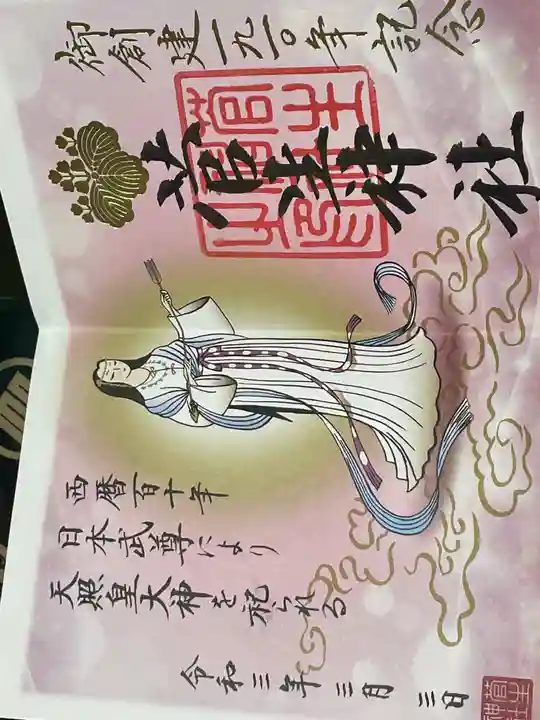 御創建一九一〇年記念
菅生神社
西暦百十年
日本武尊により
天照皇大神を祀られる
令和三年三月三日